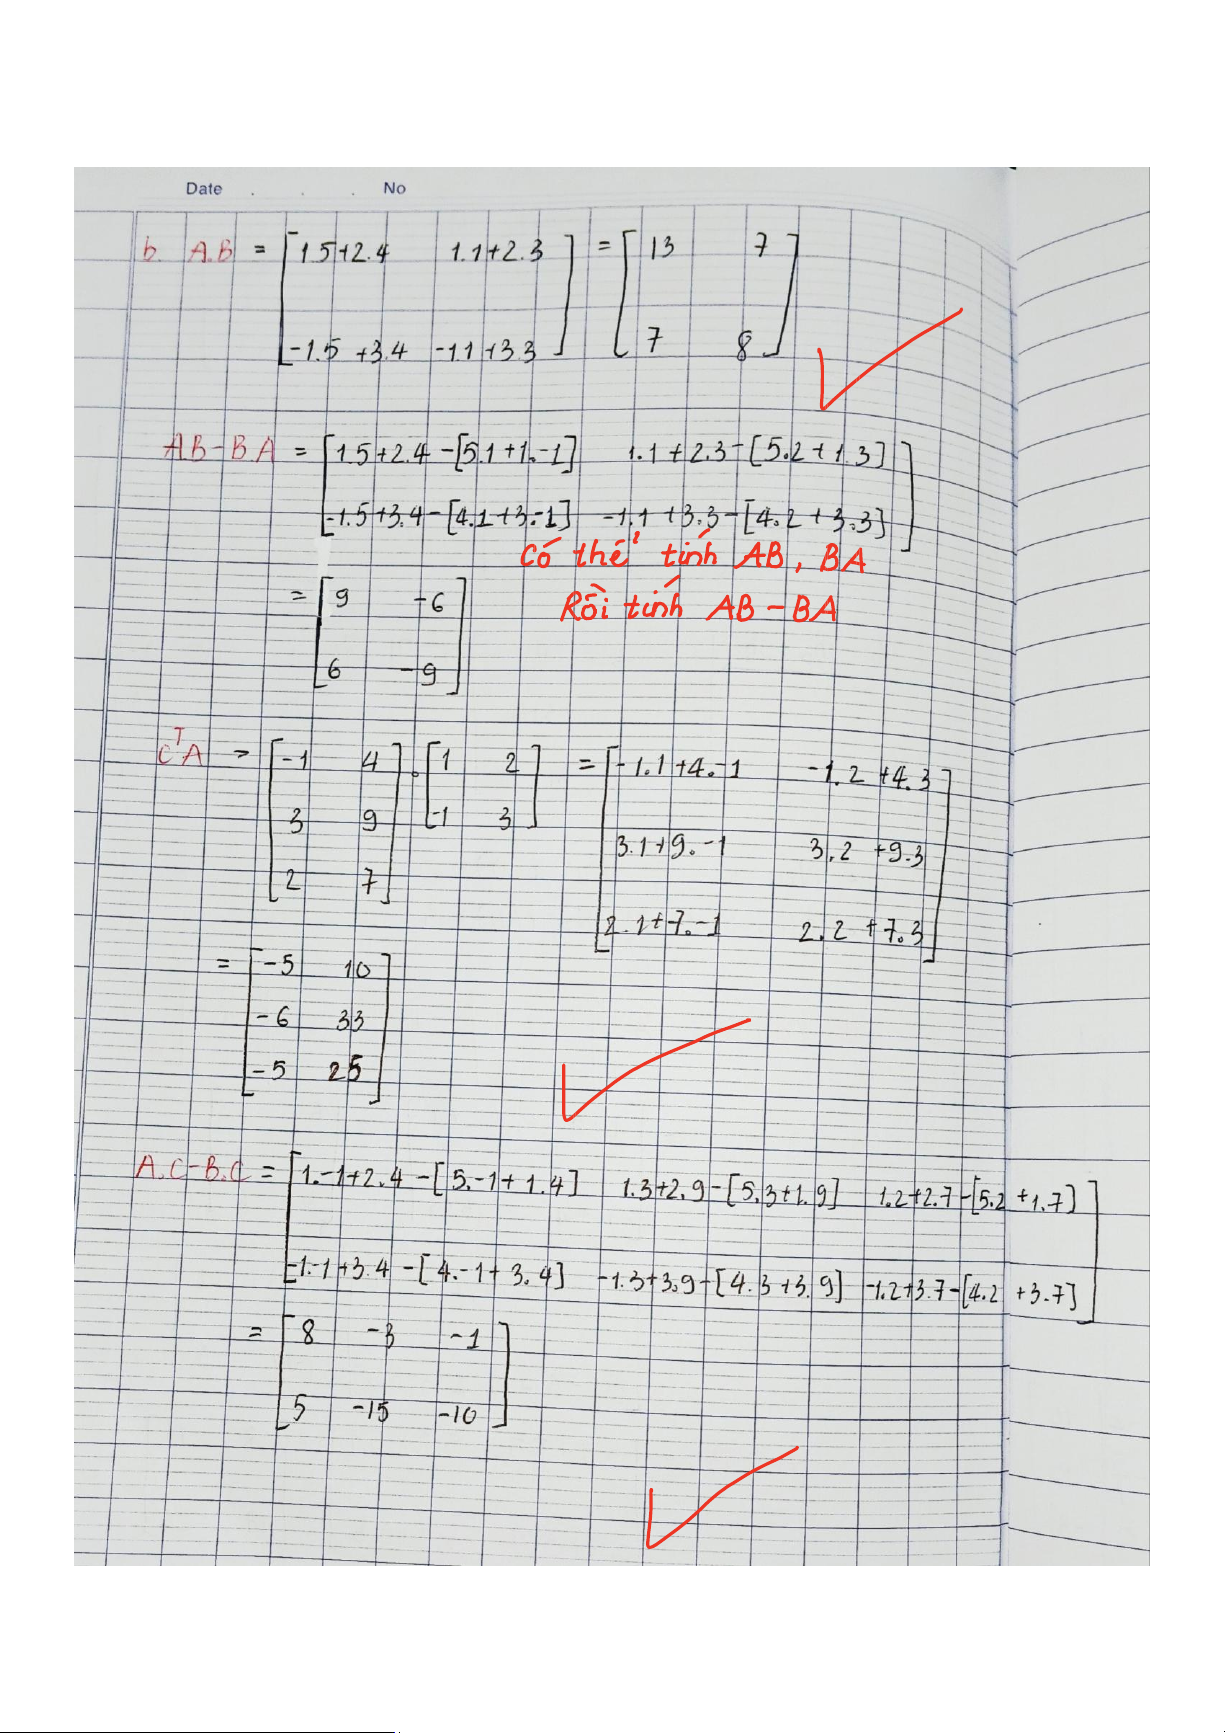 Date . . . No
b. A.B = [1.5+2.4 1.1+2.3] = [13 7]
[-1.5+3.4 -1.1+3.3] [7 8]
AB-BA = [1.5+2.4-[5.1+1.-1] 1.1+2.3-[5.2+1.3]]
[-1.5+3.4-[4.1+3.-1] -1.1+3.3-[4.2+3.3]]
Có thể tính AB, BA
Rồi tính AB-BA
= [9 -6]
[6 -9]
CᵀA = [-1 4] . [1 2] = [-1.1+4.-1 -1.2+4.3]
[3 9] [-1 3] [3.1+9.-1 3.2+9.3]
[2 7] [2.1+7.-1 2.2+7.3]
= [-5 10]
[-6 33]
[-5 25]
A.C-B.C = [1.-1+2.4-[5.-1+1.4] 1.3+2.9-[5.3+1.9] 1.2+2.7-[5.2+1.7]]
[-1.-1+3.4-[4.-1+3.4] -1.3+3.9-[4.3+3.9] -1.2+3.7-[4.2+3.7]]
= [8 -3 -1]
[5 -15 -10]